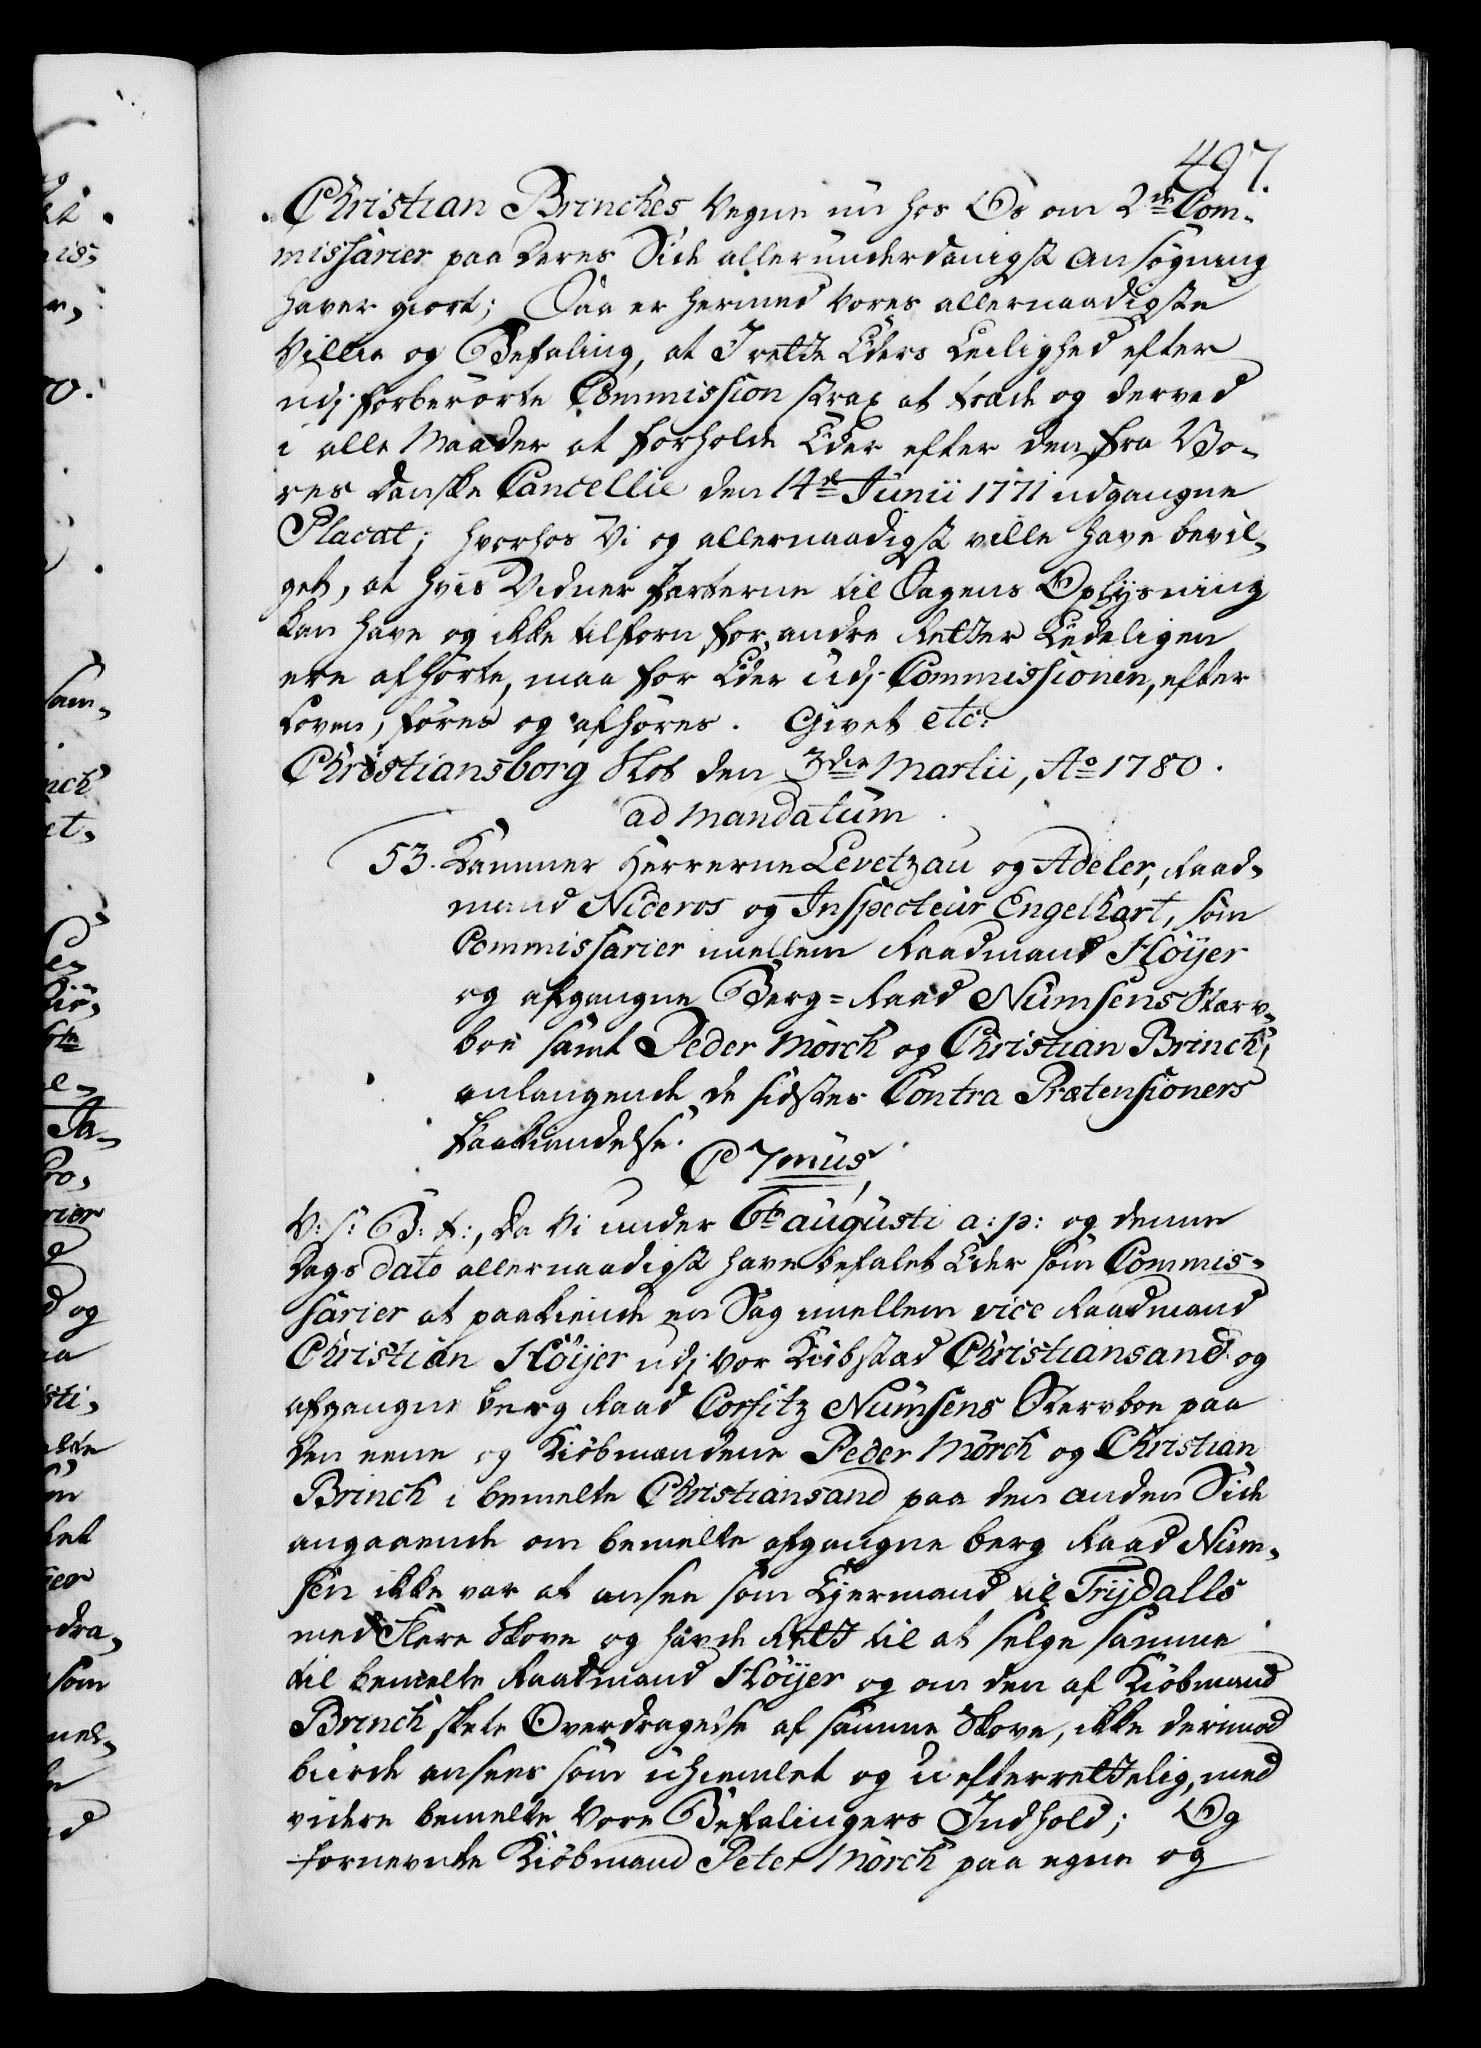 497.
Christian Brinches Vegne nu hos Os om 2de Com-
missarier paa deres Side allerunderdanigst Ansøgning
haver giort; Saa er hermed Vores allernaadigste
Villie og Befaling, at I rette Eders Leilighed efter
udj forberørte Commission strax at træde og derved
i alle Maader at forholde Eder efter den fra Vo-
res danske Cancellie den 14de Junii 1771 udgangne
Placat; hvorhos Vi og allernaadigst ville have bevil-
get, at hvis Vidner Parterne til Sagens Oplysning
kan have og ikke tilforn for andre Retter Lydeligen
ere afhørte, maa for Eder udj Commissionen, efter
Loven, føres og afhøres. Givet etc:
Christiansborg Slot den 3die Martii, Ao 1780.
ad mandatum
53. Kammer Herrerne Levetzau og Adeler, Raad-
mand Nideros og Inspecteur Engelhart, som
Commissarier imellem Raadmand Höijer
og afgangne Berg=Raad Numsens Starv-
boe samt Peder Mörch og Christian Brinch,
anlangende de sidstes Contra Prætensioners
Paakiendelse.
C 7mus
V: s: G: t:, Da Vi under 6te augusti a: p: og denne
Dags dato allernaadigst have befalet Eder som Commis-
sarier at paakiende en Sag imellem vice Raadmand
Christian Höijer udj vor Kiøbstad Christiansand og
afgangne berg Raad Corfitz Numsens Stervboe paa
den eene og Kiøbmændene Peder Mörch og Christian
Brinch i bemelte Christiansand paa den anden Side
angaaende om bemelte afgangne berg Raad Num-
sen ikke var at ansee som Ejermand til Trijdalls
med flere Skove og havde Rett til at selge samme
til bemelte Raadmand Höijer og om den af Kiøbmand
Brinch skete Overdragelse af samme Skove, ikke derimod
burde ansees som uhiemlet og u efterrettelig, med
videre bemelte Vore Befalingers Indhold; Og
fornevnte Kiøbmand Peter Mörch paa egne og